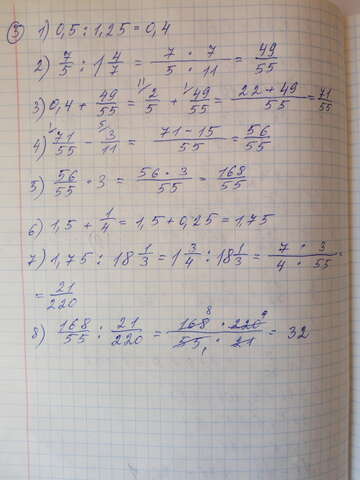 ③ 1) 0,5 : 1,25 = 0,4
2) 7/5 : 1 4/7 = 7 · 7 / 5 · 11 = 49/55
3) 0,4 + 49/55 = 11) 2/5 + 1) 49/55 = 22 + 49 / 55 = 71/55
4) 1) 71/55 - 5) 3/11 = 71 - 15 / 55 = 56/55
5) 56/55 · 3 = 56 · 3 / 55 = 168/55
6) 1,5 + 1/4 = 1,5 + 0,25 = 1,75
7) 1,75 : 18 1/3 = 1 3/4 : 18 1/3 = 7 · 3 / 4 · 55 =
= 21/220
8) 168/55 : 21/220 = 168 8 · 220 4 / 55 1 · 21 = 32